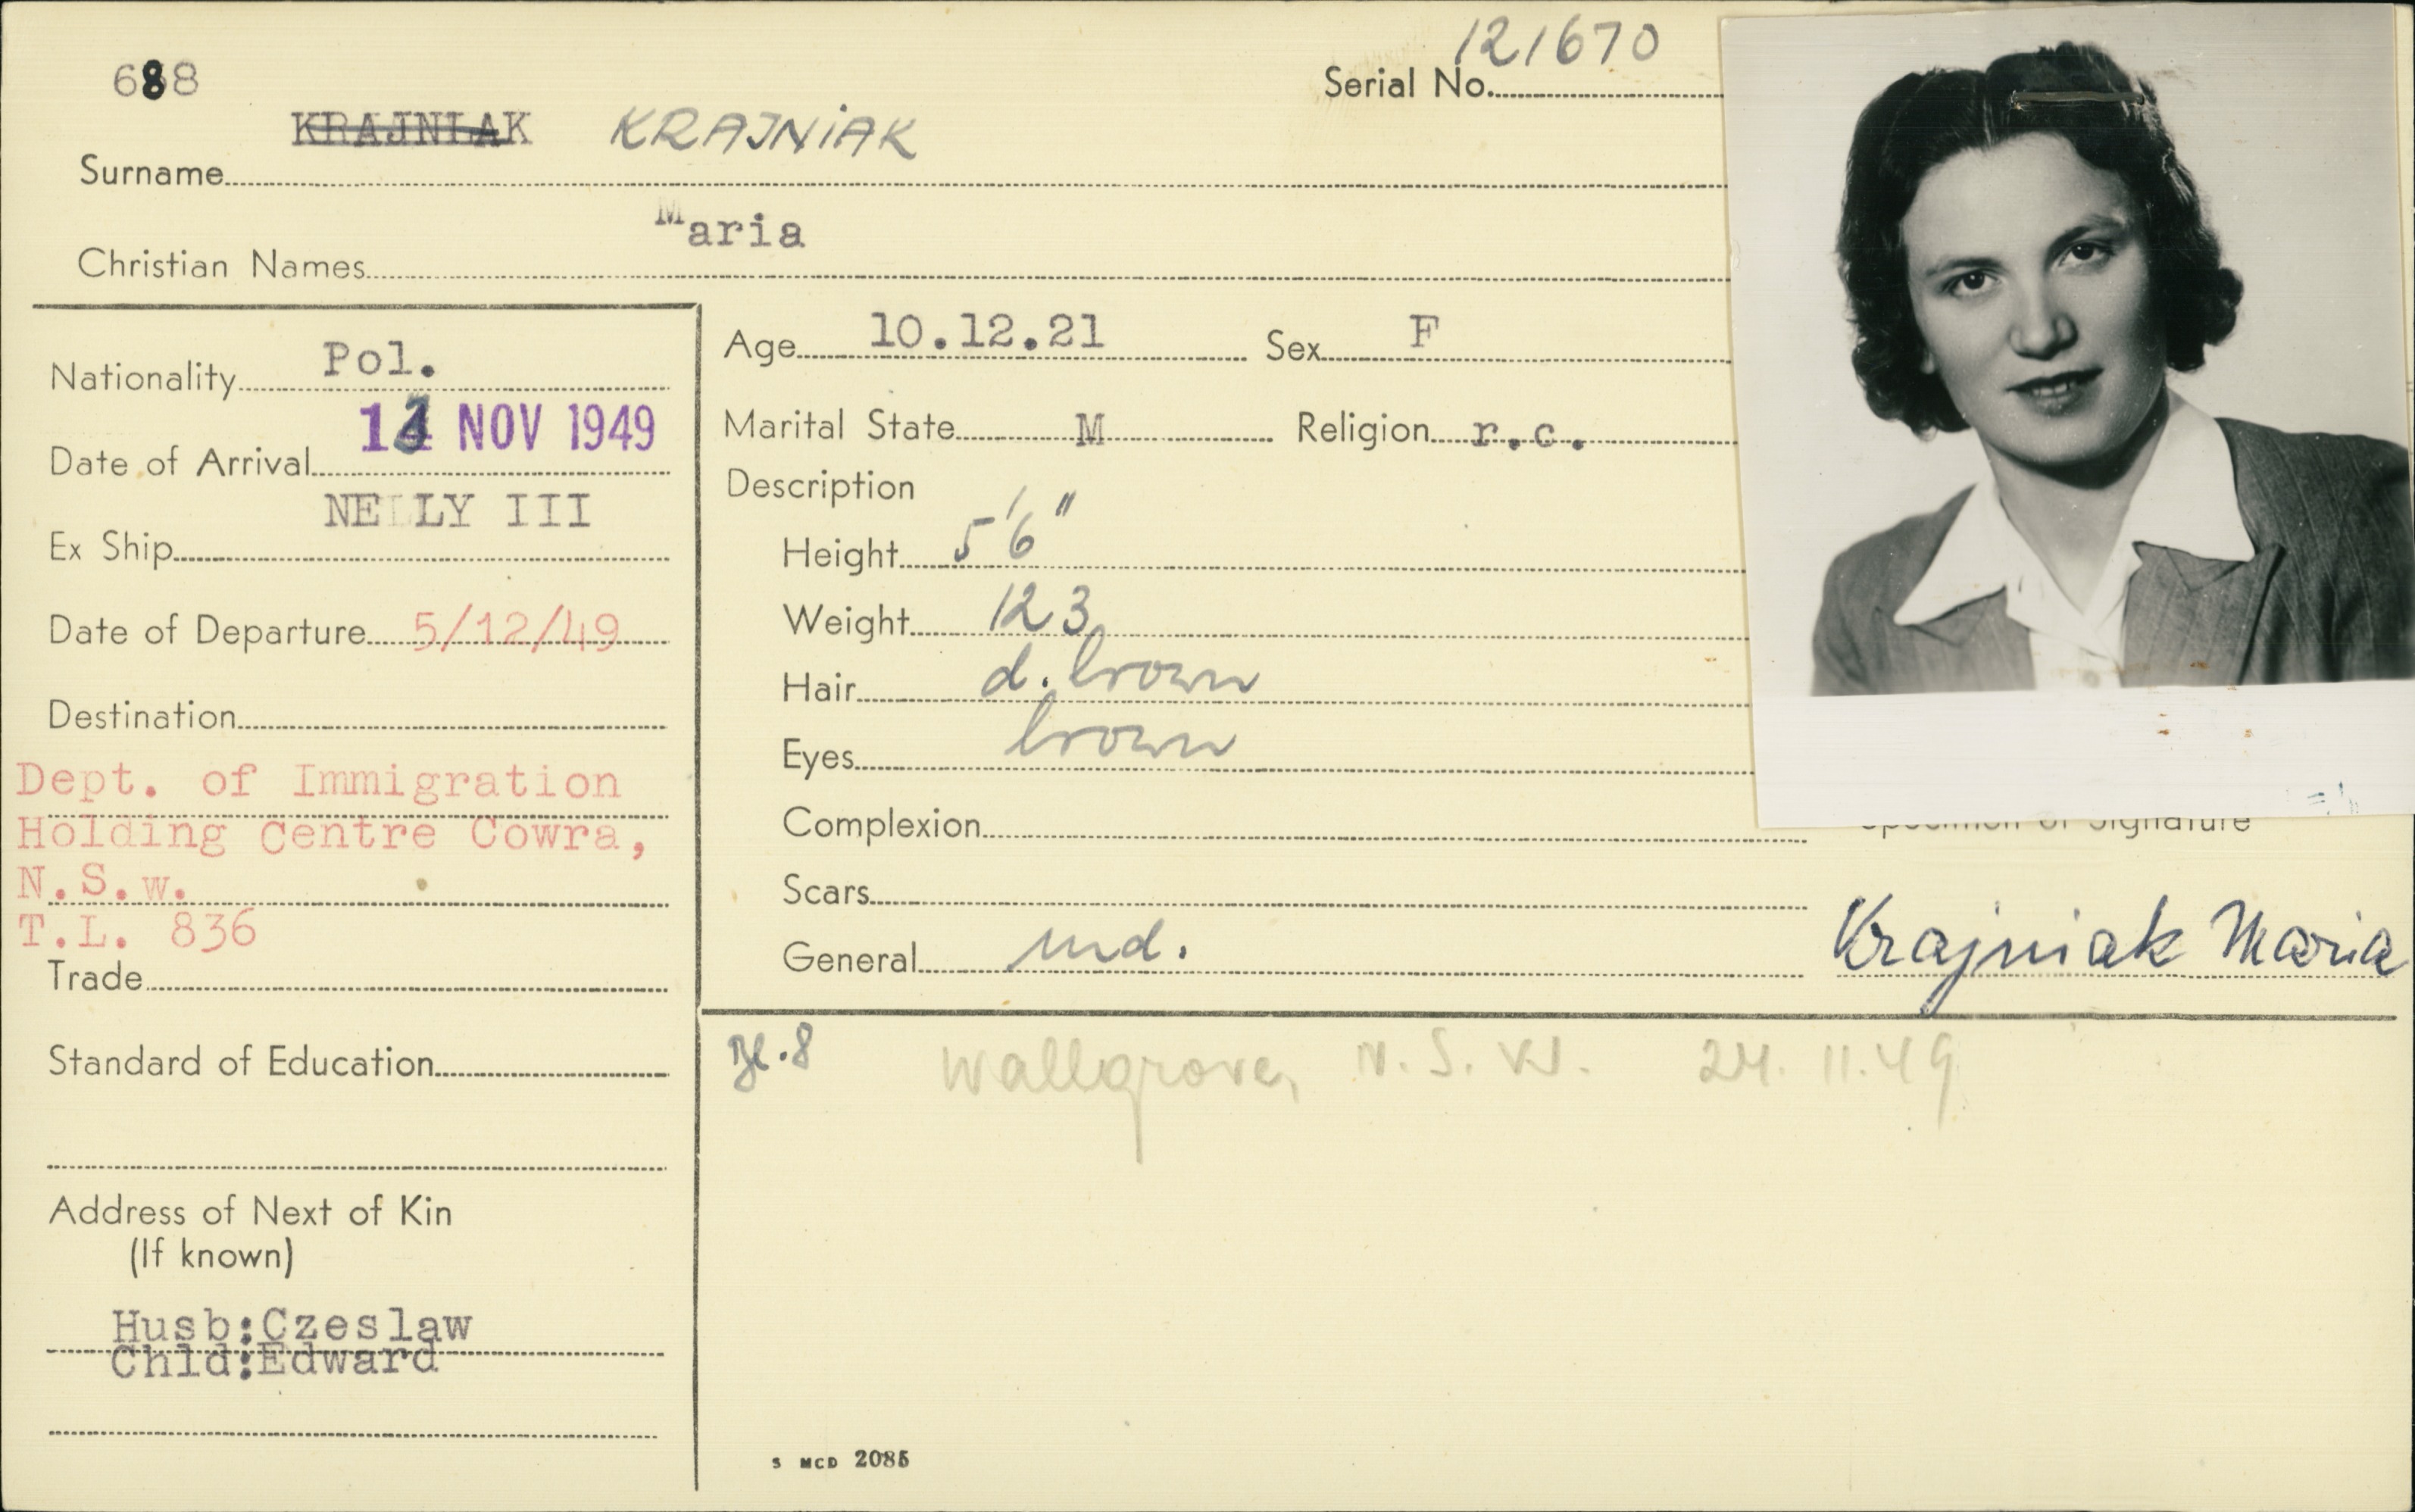 688
Serial No. 121670
Surname KRAJNIAK KRAJNiAK
Christian Names Maria
Nationality Pol.
Date of Arrival NOV 1949
Ex Ship NELLY III
Date of Departure 5/12/49
Destination
Dept. of Immigration
Holding Centre Cowra,
N.S.w.
T.L. 836
Trade
Standard of Education
Address of Next of Kin
(If known)
Husb:Czeslaw
Chld:Edward
Age 10.12.21 Sex F
Marital State M Religion r.c.
Description
Height 5'6"
Weight 123
Hair d. brown
Eyes brown
Complexion
Scars
General
Specimen of Signature
Krajniak Maria
Wallgrove, N.S.W. 24.11.49
S MCD 2085